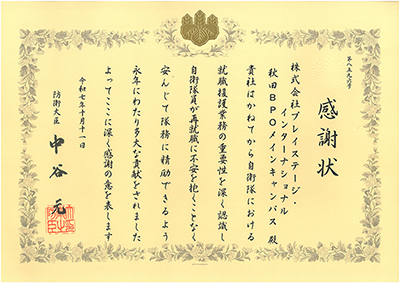 第八九九六号
感謝状
株式会社プレイステージ・
インターナショナル
秋田BPOメインキャンパス 殿
貴社はかねてから自衛隊における
就職援護業務の重要性を深く認識し
自衛隊員が再就職に不安を抱くことなく
安んじて隊務に精励できるよう
永年にわたり多大な貢献をされました
よってここに深く感謝の意を表します
令和七年十月十一日
防衛大臣 中谷 元